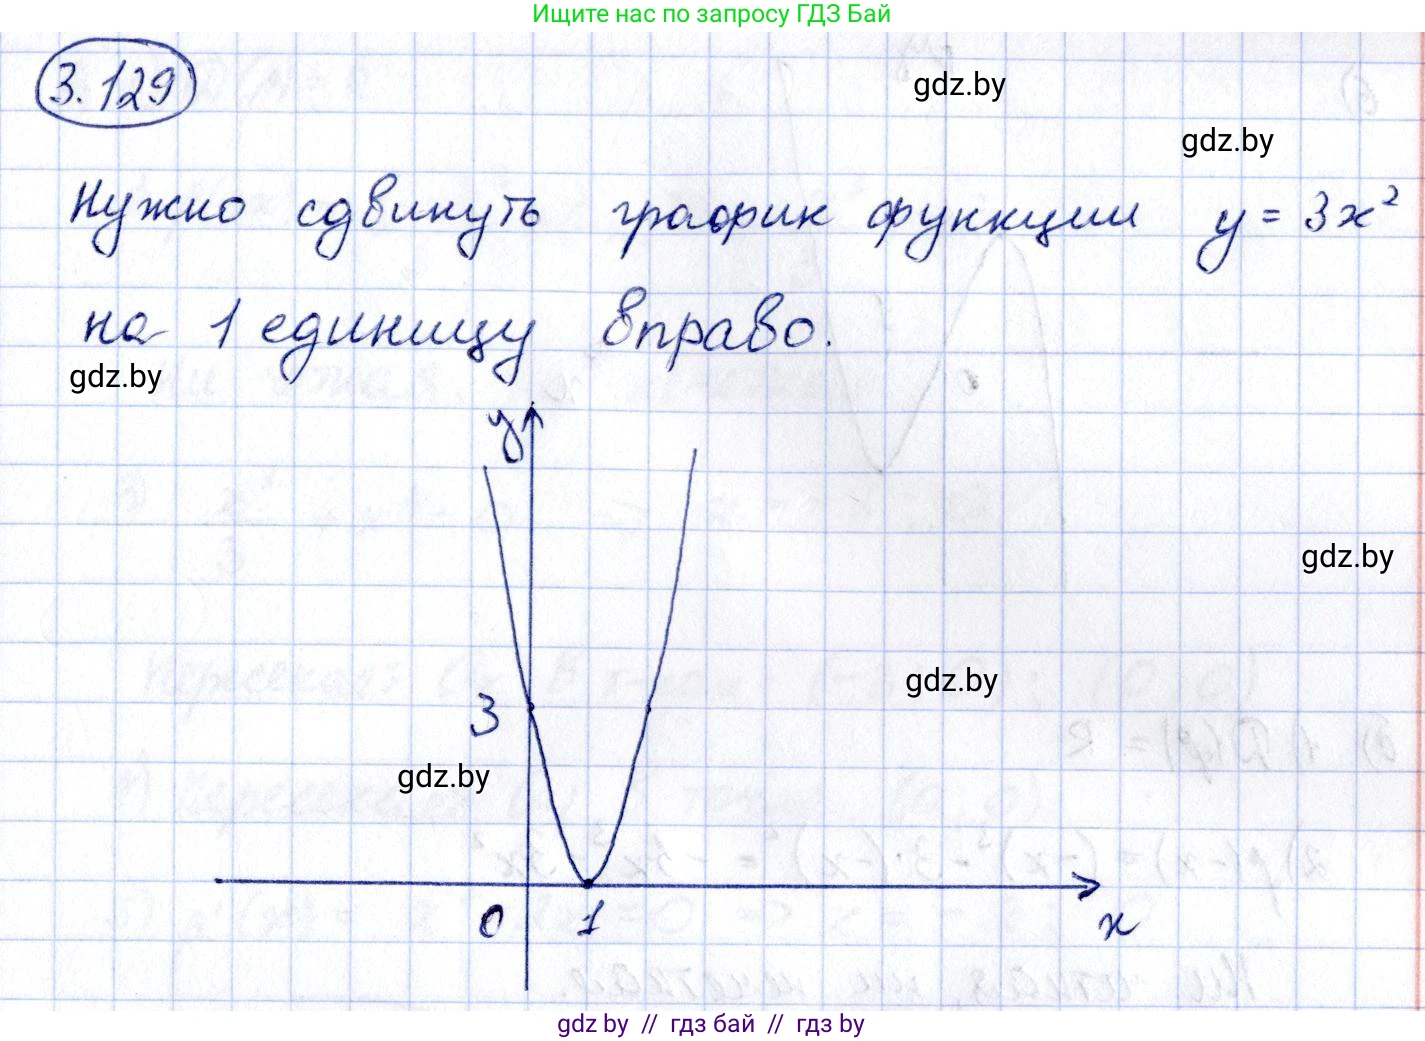 Ищите нас по запросу ГДЗ Бай
3.129
gdz.by
gdz.by
Нужно сдвинуть график функции y = 3x²
на 1 единицу вправо.
gdz.by
y
gdz.by
gdz.by
3
gdz.by
0 1 x
gdz.by // гдз бай // гдз by